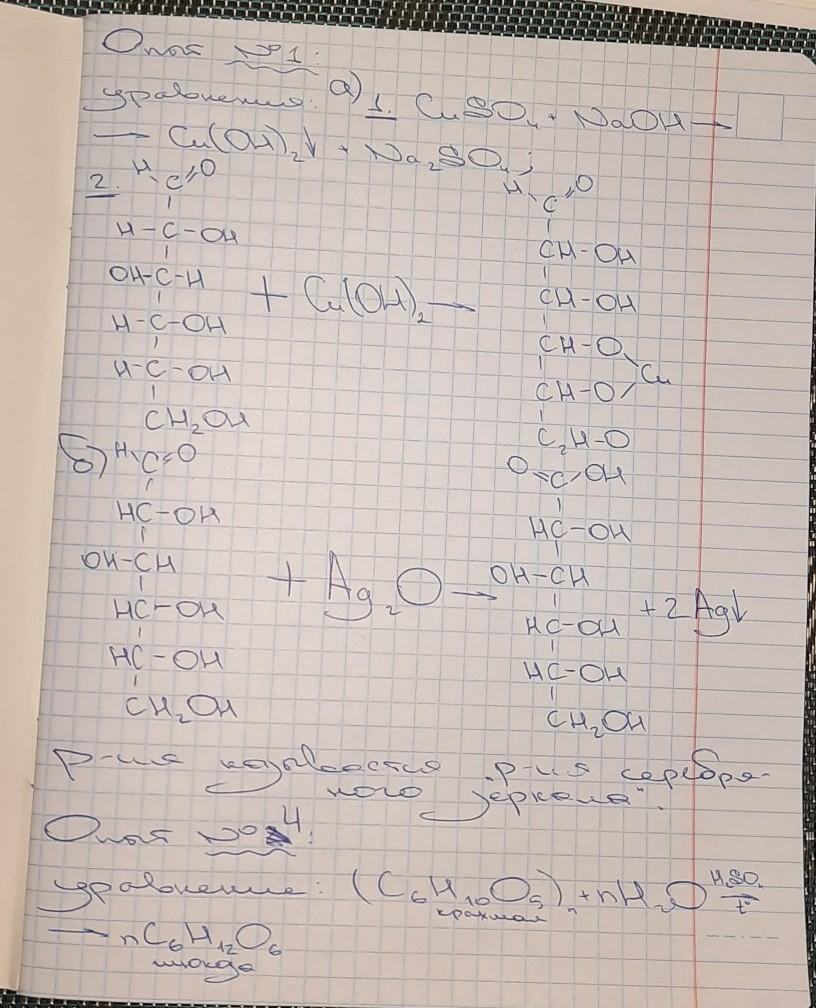 Опыт №1:
уравнения: а) 1. CuSO₄ + NaOH →
→ Cu(OH)₂↓ + Na₂SO₄;
2. H\C//O
H-C-OH
OH-C-H
H-C-OH
H-C-OH
CH₂OH
+ Cu(OH)₂ →
H\C//O
CH-OH
CH-OH
CH-O\
CH-O/ Cu
C₂H-O
б) H\C=O
HC-OH
OH-CH
HC-OH
HC-OH
CH₂OH
+ Ag₂O →
O=C/OH
HC-OH
OH-CH
HC-OH
HC-OH
CH₂OH
+ 2Ag↓
р-ия называется „р-ия серебря-
ного зеркала".
Опыт №4:
уравнение: (C₆H₁₀O₅)ₙ + nH₂O H₂SO₄ t°
крахмал
→ nC₆H₁₂O₆
глюкоза